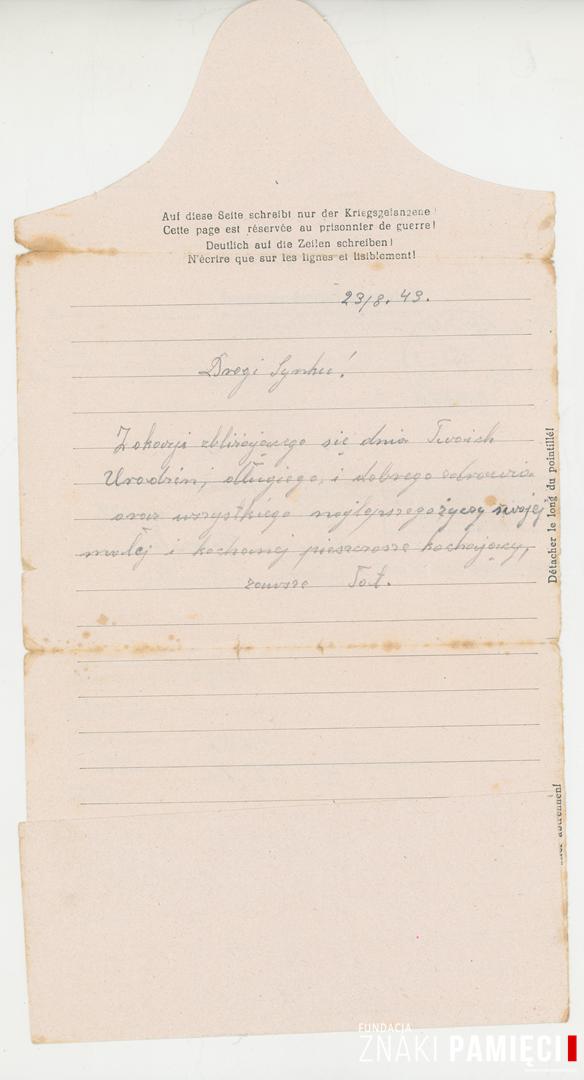 Auf diese Seite schreibt nur der Kriegsgefangene!
Cette page est réservée au prisonnier de guerre!
Deutlich auf die Zeilen schreiben!
N'écrire que sur les lignes et lisiblement!
23/8. 43.
Drogi Synku!
Z okazji zbliżającego się dnia Twoich
Urodzin, długiego, i dobrego zdrowia
oraz wszystkiego najlepszego życzy swojej
małej i kochanej pieszczosze kochający,
zawsze Tat.
Détacher le long du pointillé!
abtrennen!
FUNDACJA
ZNAKI PAMIĘCI